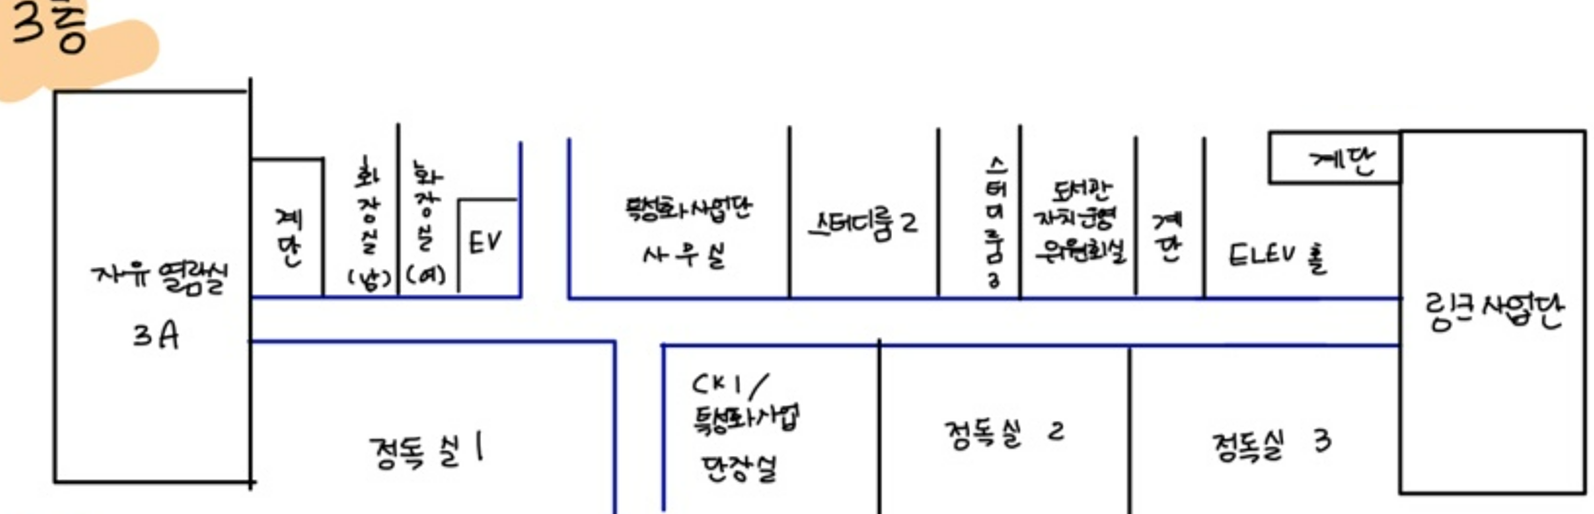 3층
자유 열람실
3A
계단
화장실
(남)
화장실
(여)
EV
특성화사업단
사무실
스터디룸 2
스터디룸3
도서관
자치운영
위원회실
계단
ELEV 홀
계단
링크 사업단
정독실 1
CK1/
특성화사업
단장실
정독실 2
정독실 3